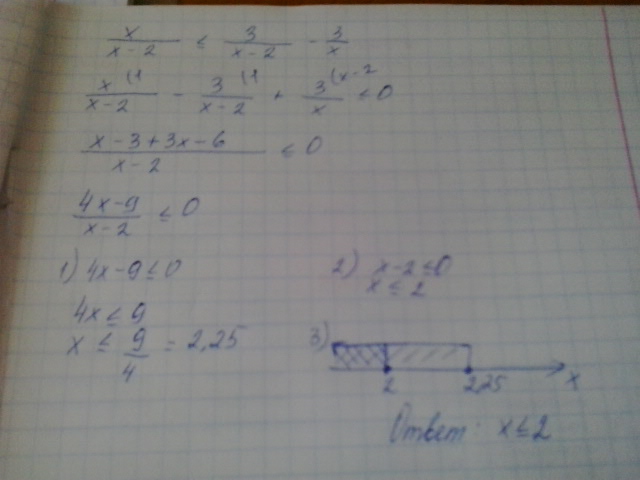 x/(x-2) ≤ 3/(x-2) - 3/x
x⁽¹/(x-2) - 3⁽¹/(x-2) + 3⁽ˣ⁻²/x ≤ 0
(x-3+3x-6)/(x-2) ≤ 0
(4x-9)/(x-2) ≤ 0
1) 4x-9≤0
4x ≤ 9
x ≤ 9/4 = 2,25
2) x-2≤0
x ≤ 2
3)
2 2,25 x
Ответ: x≤2